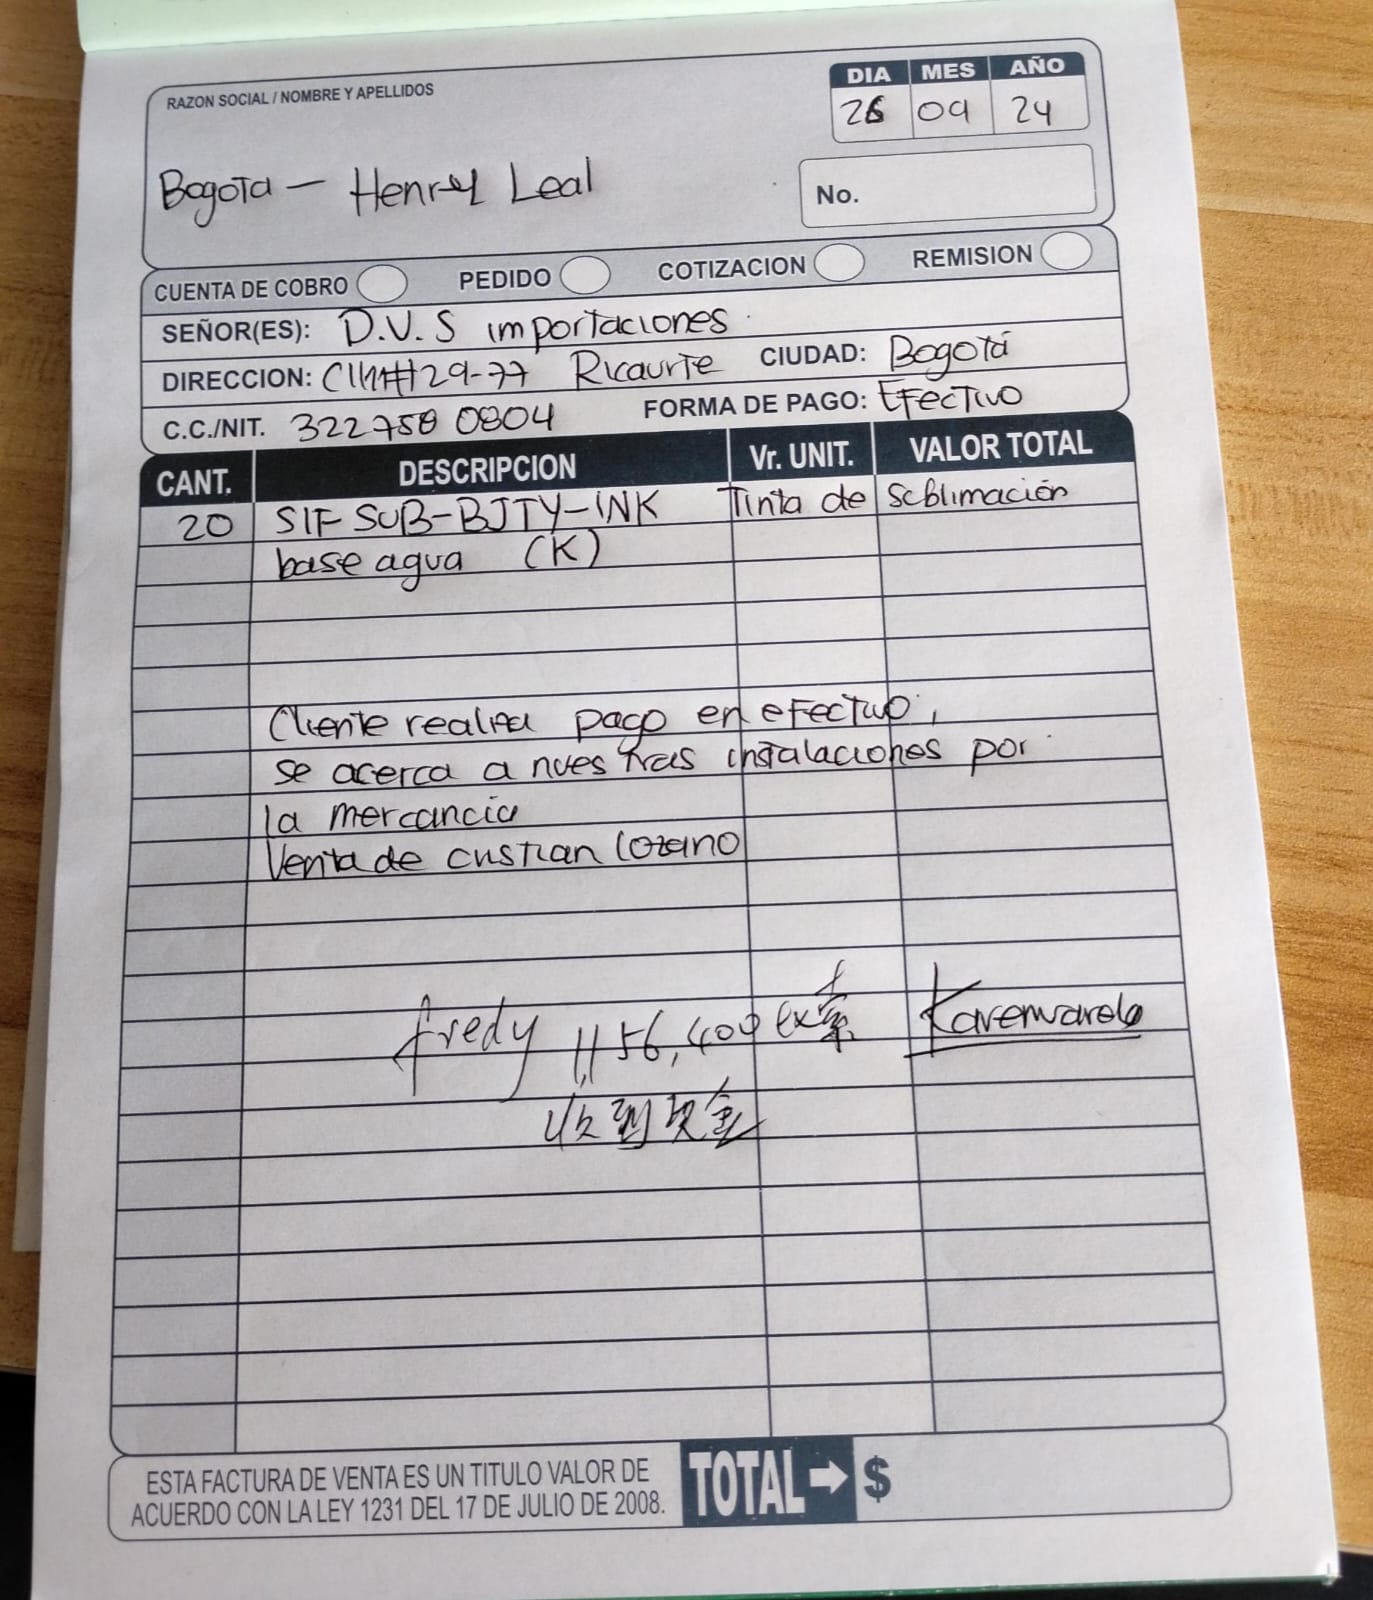 RAZON SOCIAL / NOMBRE Y APELLIDOS
DIA MES AÑO
26 09 24
Bogota - Henry Leal
No.
CUENTA DE COBRO PEDIDO COTIZACION REMISION
SEÑOR(ES): D.V.S importaciones
DIRECCION: Cll 11 # 29-77 Ricaurte CIUDAD: Bogotá
C.C./NIT. 322 758 0804 FORMA DE PAGO: Efectivo
CANT. DESCRIPCION Vr. UNIT. VALOR TOTAL
20 SIF SUB-BJTY-INK Tinta de Sublimación
base agua (K)
Cliente realiza pago en efectivo,
se acerca a nuestras instalaciones por
la mercancia
Venta de Cristian Lozano
fredy 1,156,400
收到现金
ESTA FACTURA DE VENTA ES UN TITULO VALOR DE
ACUERDO CON LA LEY 1231 DEL 17 DE JULIO DE 2008.
TOTAL → $